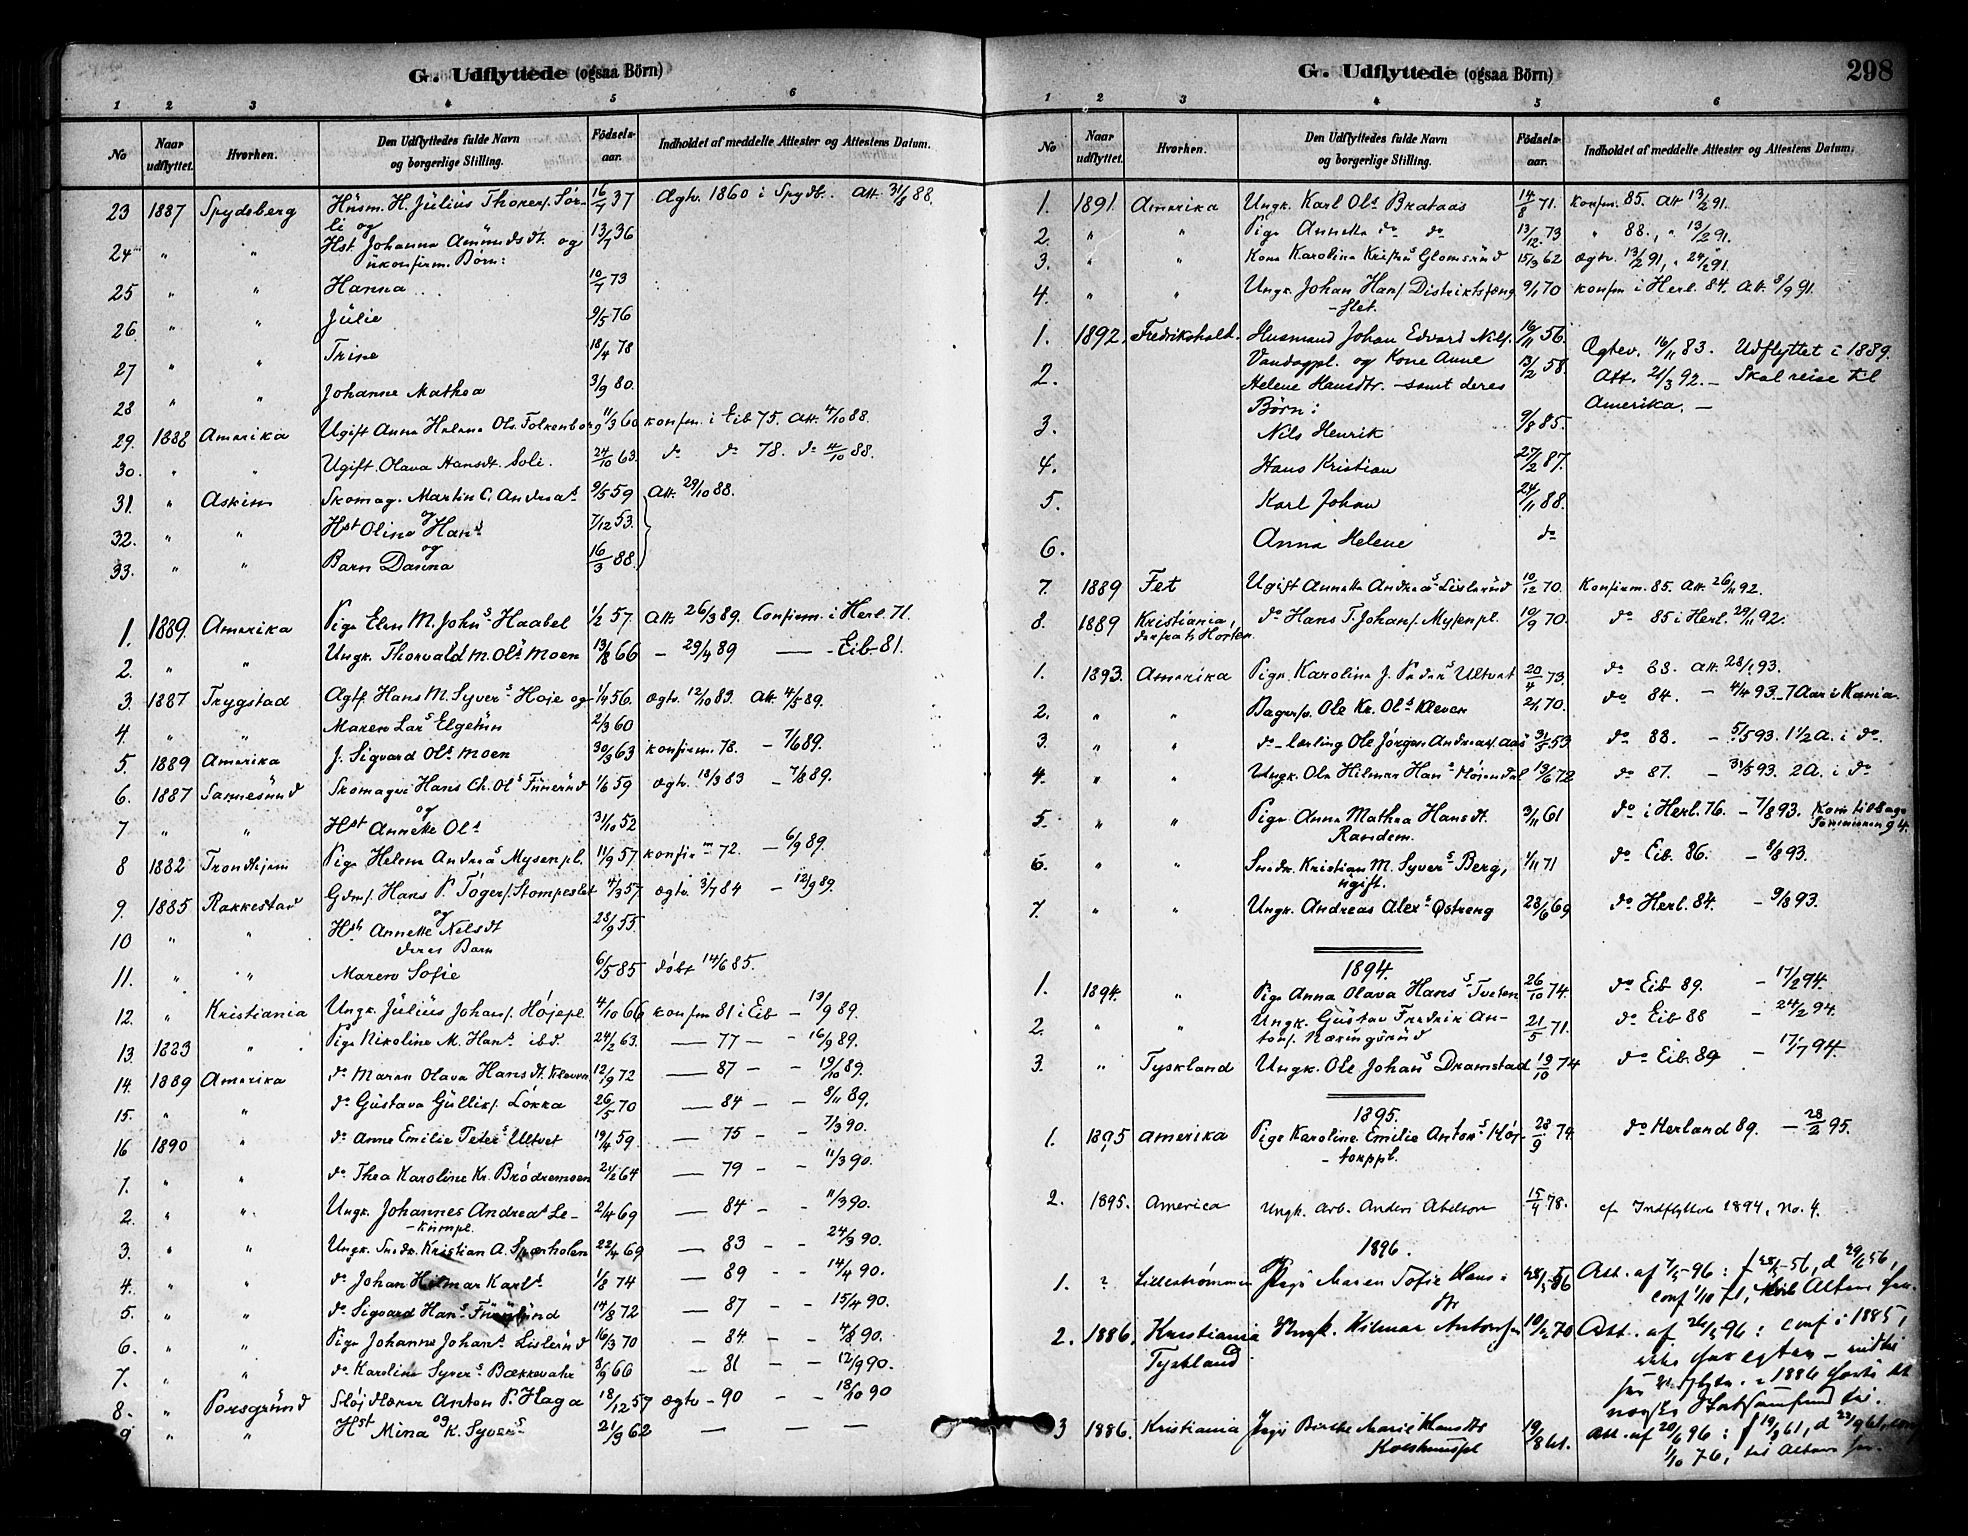 G. Udflyttede (ogsaa Börn)
1 2 3 4 5 6
No Naar udflyttet. Hvorhen. Den Udflyttedes fulde Navn og borgerlige Stilling. Födsels-aar. Indholdet af meddelte Attester og Attestens Datum.
23 1887 Spydeberg Husm. H. Julius Thorers. Sør- 16/7 37 Ægtv. 1860 i Spydb. Att. 31/8 88.
li og
24 " " Hst. Johanne Amundsdt. og 13/7 36
ukonfirm. Børn:
25 " " Hanna 10/7 73
26. " " Julie 9/5 76
27 " " Trine 18/4 78
28 " " Johanne Mathea 3/9 80.
29. 1888 Amerika Ugift Anne Helene Ols. Folkenborg 11/3 60 konfirm. i Eib 75. Att. 4/10 88.
30. " " Ugift. Olava Hansdt. Soli. 24/10 63. do do 78. do 4/10 88.
31. " Askim Skomag. Martin C. Andreas 9/5 59 Att. 29/10 88.
og
32. " " Hst Oline Hans 7/12 53.
og
33. " " Barn Danna 16/3 88.
1. 1889. Amerika Pige Elen M. Johns Haabel 1/2 57 Att. 26/3 89. Confirm. i Herl. 71.
2. " " Ungk. Thorvald M. Ols Moen 13/8 66 — 29/4 89 — - Eib 81.
3. 1887 Trygstad Agtf Hans M. Syvers Høie og 1/4 56. ægtv. 12/10 83. Att. 4/5 89.
4. " " Maren Lars Elgetun 2/3 60
5. 1889 Amerika J. Sigvard Ols Moen 30/3 63 konfirm. 78. — 7/6 89.
6. 1887 Sannesund Skomager Hans Ch. Ols Fuuerud 1/6 59 ægtv. 18/3 83 — 7/8 89.
og
7 " " Hst Annette Ols 31/10 52
8 1882 Trondhjem Pige Helene Andreas Mysenpl. 11/9 57 konfirm 72. — 6/9 89.
9. 1885 Rakkestad Gdm. Hans P. Tøgers. Stompeslet 4/3 57 ægtv. 3/7 84 — 12/9 89.
og
10 " " Hst Annette Nelsdt 28/9 55.
deres Barn
11. " " Maren Sofie 6/5 85 døbt 14/6 85.
12. " Kristiania Ungk. Julius Johans. Højepl. 4/10 66 konfirm 81 i Eib — 13/9 89.
13. 1883 " Pige Nikoline M. Hans ibd. 24/2 63. — 77 — - 16/9 89.
14. 1889 Amerika do Maren Olava Hansdt. Kleven 12/9 72 — 87 — - 19/10 89.
15. " " do Gustava Gulliks. Løkka 26/5 70 — 84 — - 8/11 89.
16 1890 " do Anne Emilie Peters Ultvet 19/4 59. — 75 — - 7/3 90.
1. " " do Thea Karoline Kr. Brødremoen 21/2 64 — 79 — - 11/3 90.
2. " " Ungk. Johannes Andreas Le- 2/4 69 — 84 — - 11/3 90.
kumpl.
3. " " Ungk. Snedk. Kristian A. Spærholen 22/4 69 — 83 - - 24/3 90.
4. " " do Johan Hilmar Karls 1/8 74 — 89 - - 14/4 90.
5. " " do Sigvard Hans 14/8 72 — 87 - - 15/4 90.
6. " " Pige Johanne Johans Lislerud 16/3 70 — 84 - - 4/8 90.
7. " " do Karoline Syvers Bækkevahr 3/9 66 — 81 - - 12/9 90.
8. " Porsgrund Sløjdlærer Anton P. Haga 18/12 57 ægtv - 90 - - 18/10 90
og
9 " " Hst Mina K. Syvers 21/9 62 — — —
298
G. Udflyttede (ogsaa Börn)
1 2 3 4 5 6
No Naar udflyttet. Hvorhen. Den Udflyttedes fulde Navn og borgerlige Stilling. Födsels-aar. Indholdet af meddelte Attester og Attestens Datum.
1. 1891. Amerika Ungk. Karl Ols Brataas 14/8 71. konfirm. 85. Att 13/2 91.
2. " " Pige Annette do do 13/12 73 " 88., " 13/2 91.
3. " " Kone Karoline Kristens Glomsrud 15/3 62 ægtv. 13/2 91, " 24/2 91.
4. " " Ungk. Johan Hans. Distriktsfæng- 9/1 70 konfirm i Herl. 84. Att. 8/9 91.
slet.
1. 1892. Fredrikshald. Husmand Johan Edvard Nils. 16/11 56. Ægtev. 16/11 83. Udflyttet i 1889.
2. Vandugpl. og Kone Anne 13/2 58. Att. 21/3 92. — Skal reise til
Helene Hansdtr. — samt deres Amerika. —
Børn:
3. Nils Henrik 9/8 85.
4. Hans Kristian 27/2 87.
5. Karl Johan 24/11 88.
6. Anna Helene do
7. 1889 Fet Ugift Annette Andreas Lislerud 10/12 70. Konfirm. 85. Att. 26/11 92.
8. 1889 Kristiania, do Hans T. Johans. Mysenpl. 10/9 70. do 85 i Herl. 29/11 92.
derfra til Horten.
1. 1893. Amerika Pige Karoline J. Peders Ultvet 20/4 73. do 88. Att. 28/1 93.
2. " " Bagersv. Ole Kr. Ols Kleven 2/1 70. do 84. — 4/4 93. 7 Aar i Kania.
3. " " do Lærling Ole Jørgen Andreass. Aas 31/5 53 do 88. — 5/5 93. 1 1/2 A. i do.
4. " " Ungk. Ole Hilmar Hans Højendal 13/6 72 do 87. — 31/5 93. 2 A. i do
5. " " Pige Anne Mathea Hansdt. 3/11 61 do i Herl. 76. — 7/8 93. Kom tilbage
Randem. Sommeren 94.
6. " " Snedk. Kristian M. Syvers Berg, 1/11 71 do Eib. 86. — 8/8 93.
ugift.
7. " " Ungk. Andreas Alexs Østreng 28/6 69 do Herl. 84. — 9/8 93.
1894.
1. 1894. " Pige Anna Olava Hans Tveten 26/10 74. do Eib 89. — 17/2 94.
2. " " Ungk. Gustav Fredrik An- 21/5 71. do Eib 88 — 24/2 94.
tons. Næringsrud
3. " Tyskland Ungk. Ole Johans Dramstad 19/10 74 do Eib. 89 — 17/7 94.
1895.
1. 1895 Amerika Pige Karoline Emilie Antons Høj- 28/9 74. do Herland 89. — 28/2 95.
torppl.
2. 1895. America Ungk. Arb. Anders Abelson 15/4 78. cf Indflyttede 1894, No. 4.
1896.
1. ? Lillestrømmen Pige Maren Sofie Hans- 28/5 56 Att. af 7/5 96: f 28/5 56, d 29/6 56,
dtr conf 1/10 71, Altars
2. 1886, Kristiania Ungk. Hilmar Antonsen 10/2 70 Att. af 26/5 96: conf i 1885,
Tyskland ikke før egten — indtil
1886 det
norske Statssamfund til.
3 1886. Kristiania Pige Birthe Marie Hansdtr 19/8 61. Att. af 20/6 96: f 19/8 61, d 29/9 61, conf
1/10 76, til Alters